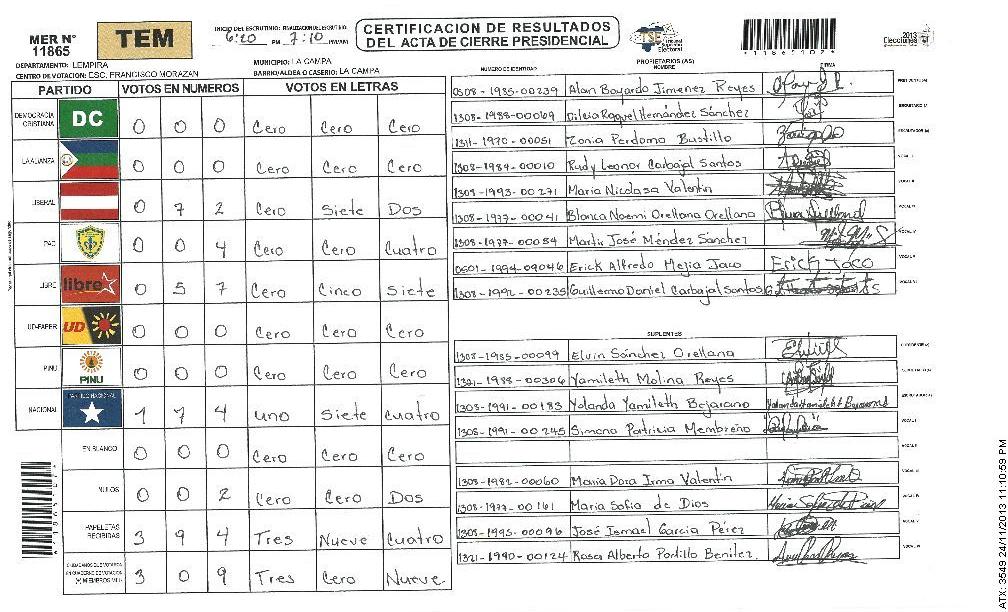 MER N° 11865
TEM
INICIO DEL ESCRUTINIO: FINALIZACION DEL ESCRUTINIO:
6:20 PM 7:10 PM/AM
CERTIFICACION DE RESULTADOS
DEL ACTA DE CIERRE PRESIDENCIAL
TSE
Tribunal Supremo Electoral
2013
Elecciones
DEPARTAMENTO: LEMPIRA
MUNICIPIO: LA CAMPA
CENTRO DE VOTACION: ESC. FRANCISCO MORAZAN
BARRIO/ALDEA O CASERIO: LA CAMPA
PARTIDO VOTOS EN NUMEROS VOTOS EN LETRAS
DEMOCRACIA CRISTIANA DC 0 0 0 Cero Cero Cero
LA ALIANZA 0 0 0 Cero Cero Cero
LIBERAL 0 7 2 Cero Siete Dos
PAC 0 0 4 Cero Cero Cuatro
LIBRE libre 0 5 7 Cero Cinco Siete
UD-FAPER UD 0 0 0 Cero Cero Cero
PINU PINU 0 0 0 Cero Cero Cero
NACIONAL PARTIDO NACIONAL 1 7 4 uno Siete Cuatro
EN BLANCO 0 0 0 Cero Cero Cero
NULOS 0 0 2 Cero Cero Dos
PAPELETAS RECIBIDAS 3 9 4 Tres Nueve Cuatro
3 0 9 Tres Cero Nueve
PROPIETARIOS (AS)
NUMERO DE IDENTIDAD NOMBRE FIRMA
0508-1985-00239 Alan Bayardo Jimenez Reyes
1308-1988-00069 Dilcia Raquel Hernández Sánchez
1311-1970-00051 Zonia Perdomo Bustillo
1308-1984-00010 Rudy Leonor Carbajal Santos
1308-1993-00271 Maria Nicolasa Valentin
1308-1977-00041 Blanca Noemi Orellana Orellana
1308-1987-00054 Martir José Méndez Sánchez
0501-1994-09046 Erick Alfredo Mejia Jaco Erick Jaco
1308-1992-00235 Guillermo Daniel Carbajal Santos
SUPLENTES
1308-1985-00099 Elvin Sánchez Orellana
1321-1988-00306 Yamileth Molina Reyes
1303-1991-00183 Yolanda Yamileth Bejarano
1308-1991-00245 Simona Patricia Membreño
1308-1982-00060 Maria Dora Irma Valentin
1308-1977-00161 Maria Sofia de Dios
1308-1995-00096 José Ismael Garcia Pérez
1321-1990-00124 Rosa Alberto Portillo Benitez
ATX: 3549 24/11/2013 11:10:59 PM